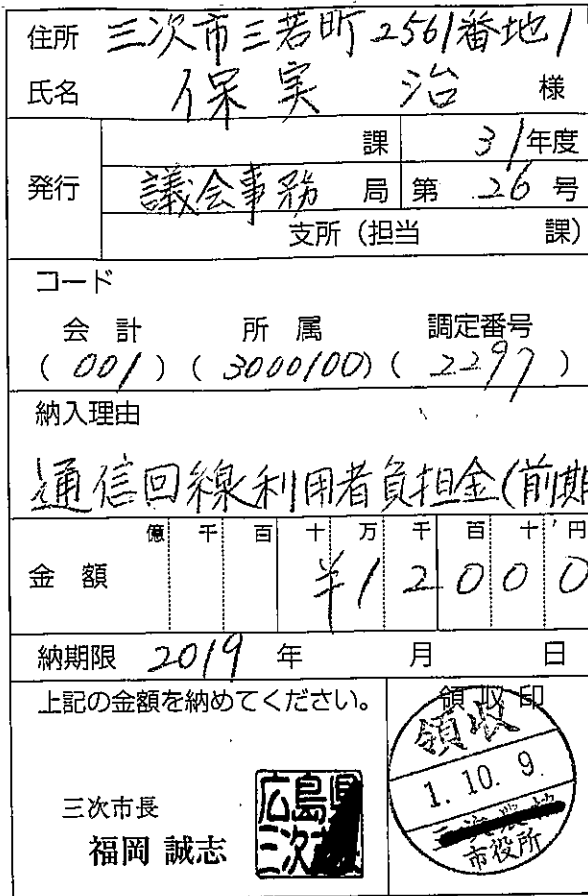 住所 三次市三若町2561番地1
氏名 保実 治 様
課 31年度
発行 議会事務 局 第 26 号
支所 (担当 課)
コード
会計 所属 調定番号
(001) (3000100) (2297)
納入理由
通信回線利用者負担金(前期
億 千 百 十 万 千 百 十 円
金額 ¥12000
納期限 2019 年 月 日
上記の金額を納めてください。
領収印
三次市長
福岡 誠志
広島県
三次市
領収
1. 10. 9
市役所